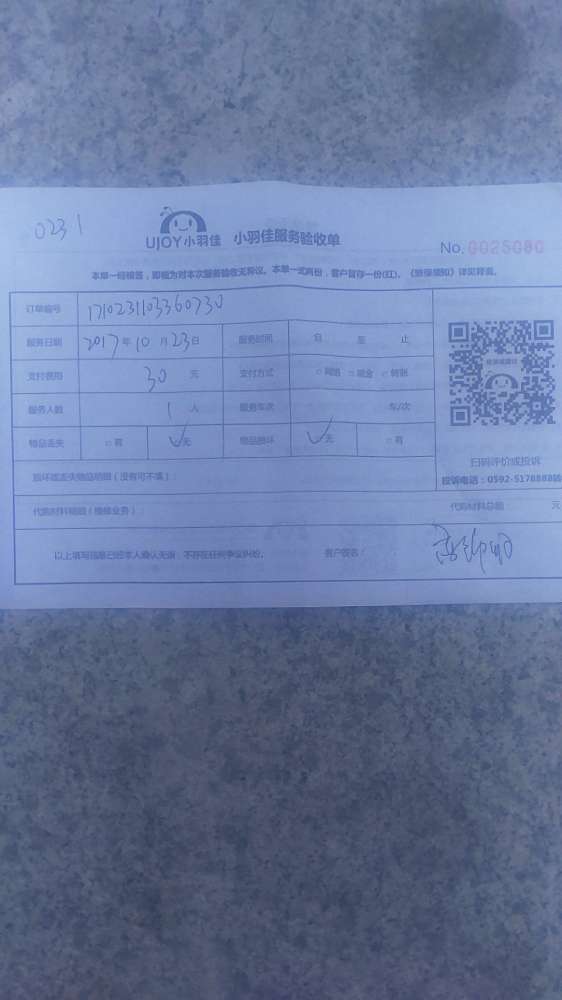 0231
UJOY小羽佳 小羽佳服务验收单
No. 0025080
本单一经填签，即视为对本次服务验收无异议。本单一式两份，客户留存一份(红)。《验收须知》详见背面。
订单编号 1710231103360730
服务日期 2017年10月23日 服务时间 自 至 止
支付费用 30 元 支付方式 □网络 □现金 □转账
服务人数 1 人 服务车次 车/次
物品丢失 □有 ✓无 物品损坏 ✓无 □有
扫码评价或投诉
投诉电话：0592-5178888
损坏或丢失物品明细（没有可不填）：
代购材料明细（维修业务）： 代购材料总额： 元
以上填写信息已经本人确认无误，不存在任何争议纠纷。 客户签名：